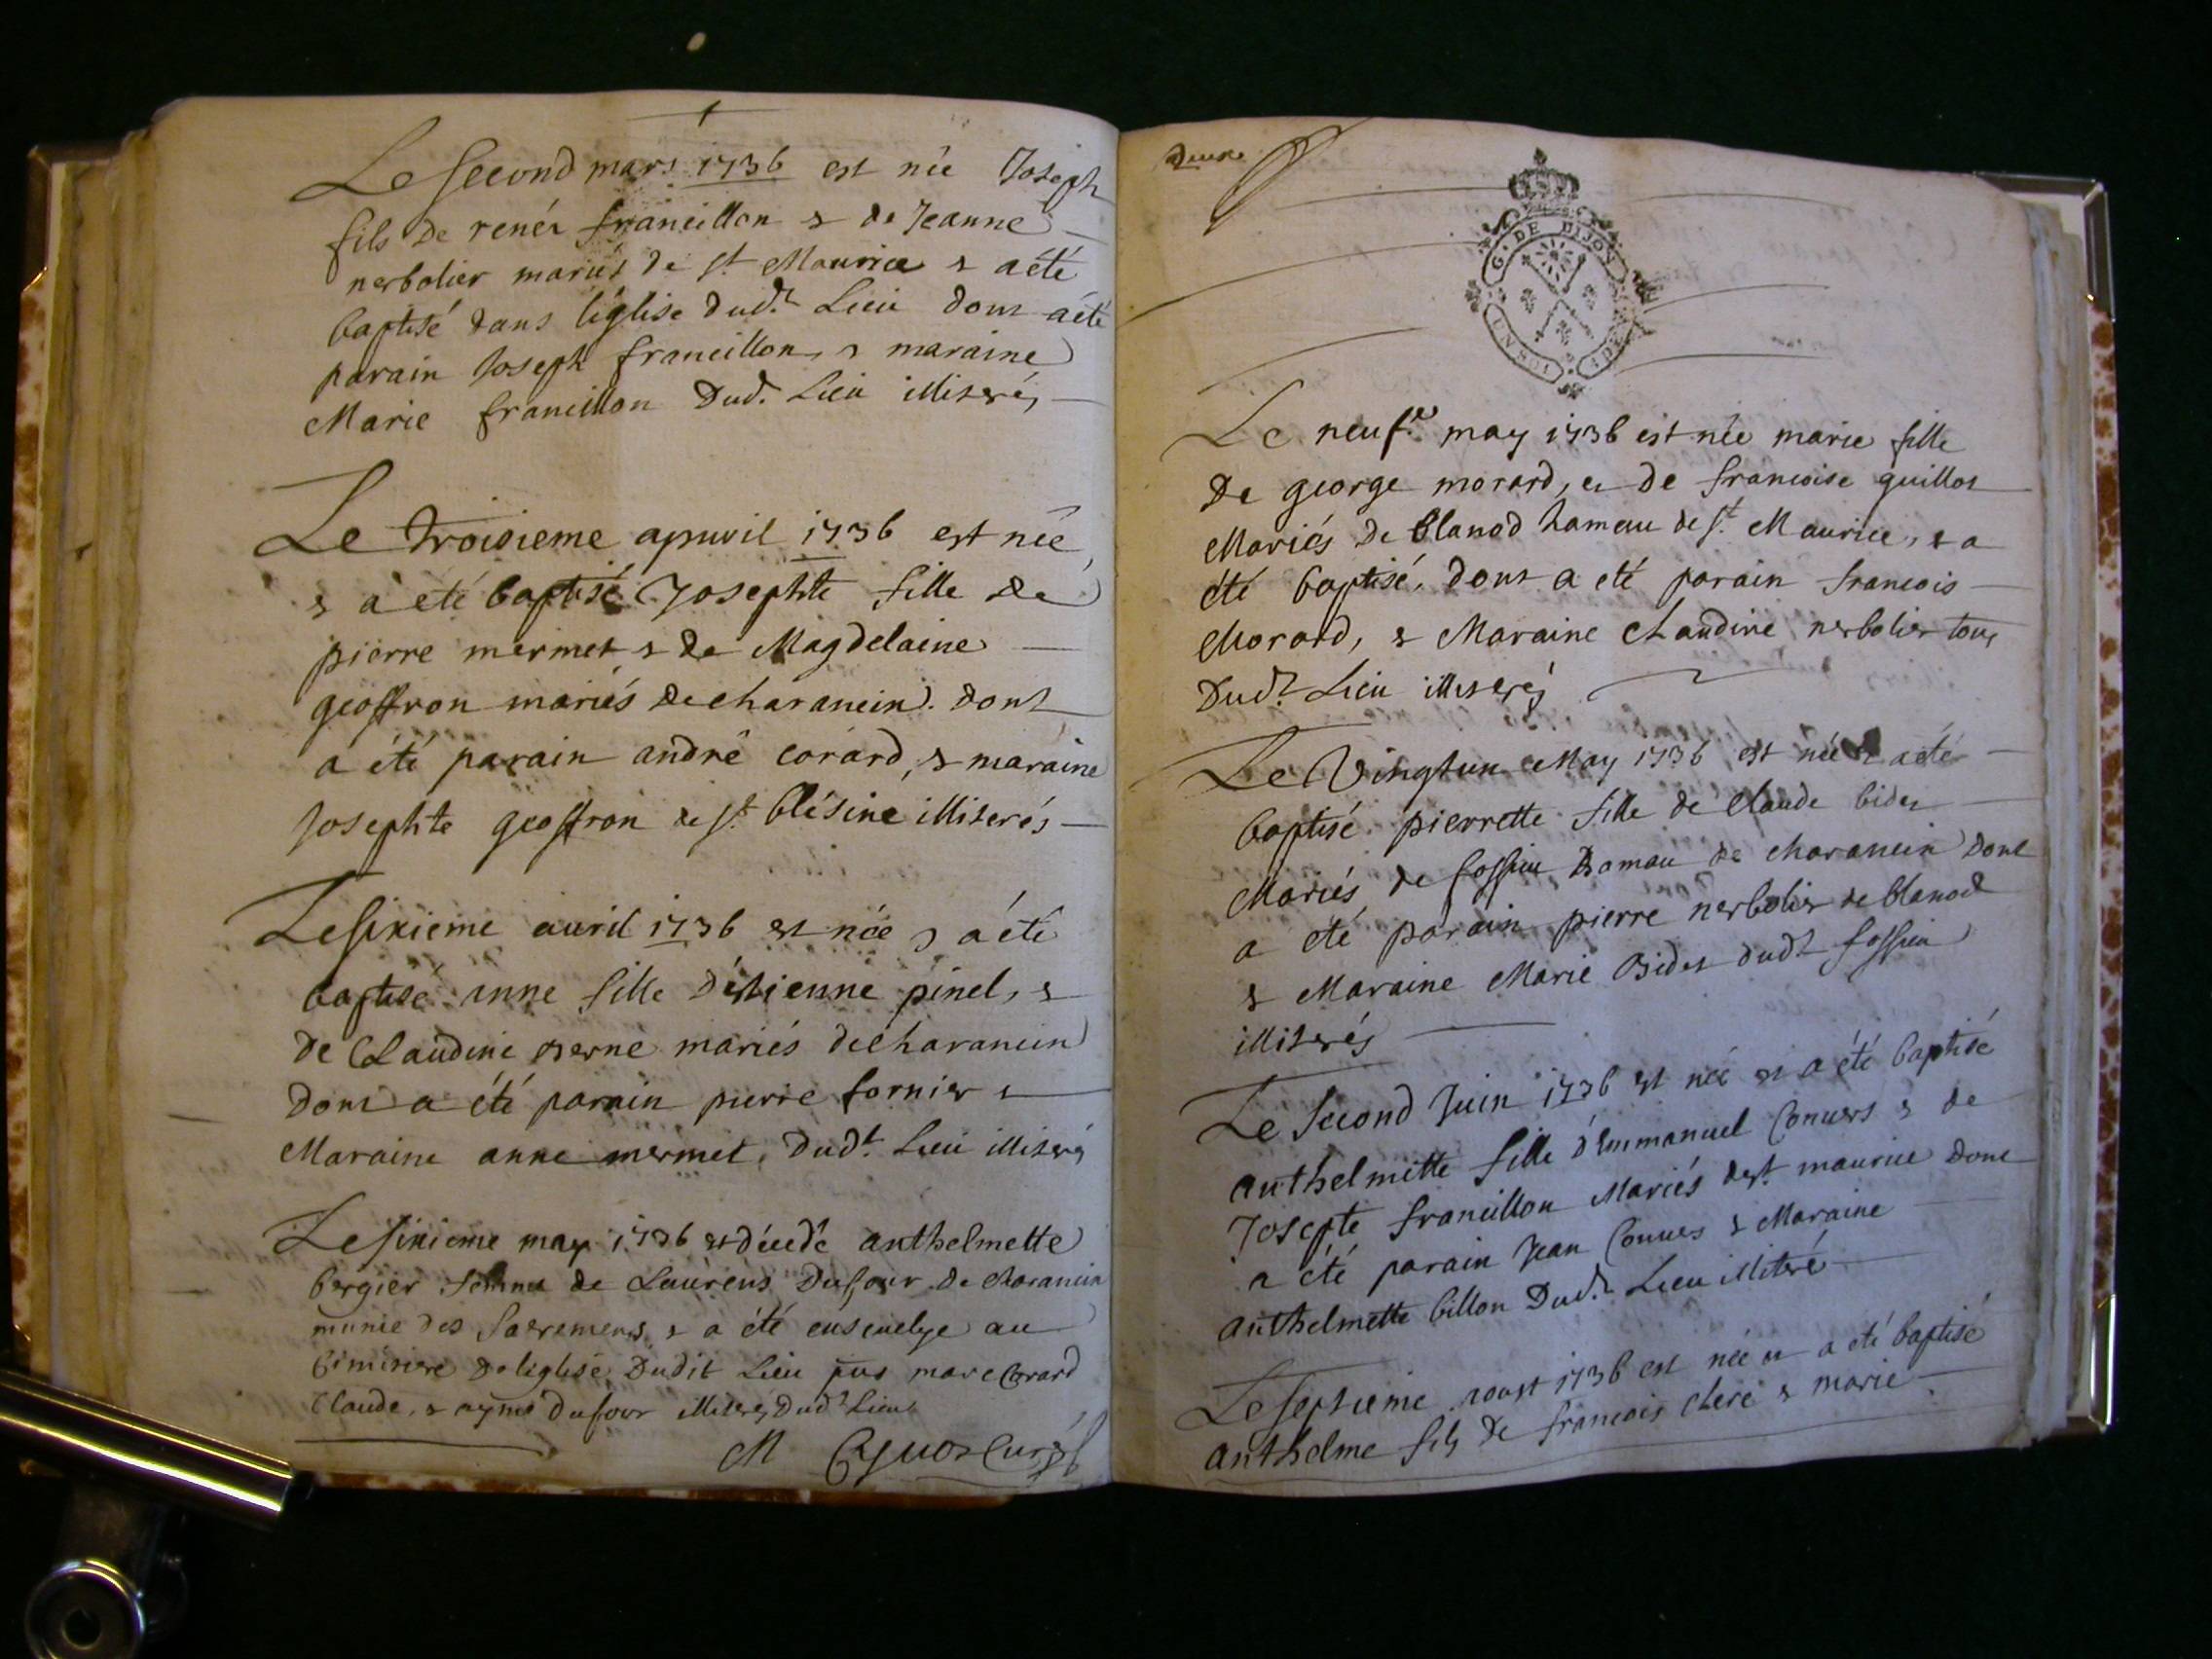 Le second mars 1736 est née Joseph
fils de renéi francillon & de Jeanne
nerbolier mariés de st. Maurice & a été
baptisé dans l'église dudt. Lieu dont a été
parain Joseph francillon, & maraine
Marie francillon Dud. Lieu illiterés
Le troisieme apuril 1736 est née
& a été baptisé Josephte fille de
pierre mermet & de Magdelaine
geoffron mariés de charancin. dont
a été parain andré corard, & maraine
Josephte geoffron de st. blésine illiterés
Le sixieme auril 1736 est née & a été
baptisé anne fille d'étienne pinel, &
de Claudine berne mariés de charancin
dont a été parain pierre fornier &
Maraine anne mermet, Dudt. Lieu illiterés
Le sixieme may 1736 est décédé anthelmette
bergier femme de Laurens Dufour de charancin
munie des sacremens & a été enseuelye au
Cimitiere de léglise Dudit Lieu pns marc Corard
Claude, & aymé dufour illiterés Dudt Lieu
M Curé
Deuxe
G. DE DIJON
UN SOL 4 DE
Le neufe may 1736 est née marie fille
De george morard, et de francoise guillot
Mariés De blanod hameau de st. Maurice, & a
été baptisé, dont a eté parain francois
Morard, & Maraine Claudine nerbolier tous
Dudt. Lieu illiterés
Le Vingtun May 1736 est née & a été
baptisé pierrette fille de Claude bidet
Mariés de fossieu hamau de charancin dont
a été parain pierre nerbolier de blanod
& Maraine Marie Bidet dudt fossieu
illiterés
Le second Juin 1736 est née et a été baptisé
anthelmette fille d'Emmanuel Conuers & de
Josepte francillon Mariés de st. maurice dont
a été parain Jean Conues & Maraine
anthelmette billon Dudt. Lieu illiteré
Le septieme aoust 1736 est née et a eté baptisé
anthelme fils de francois clere & marie